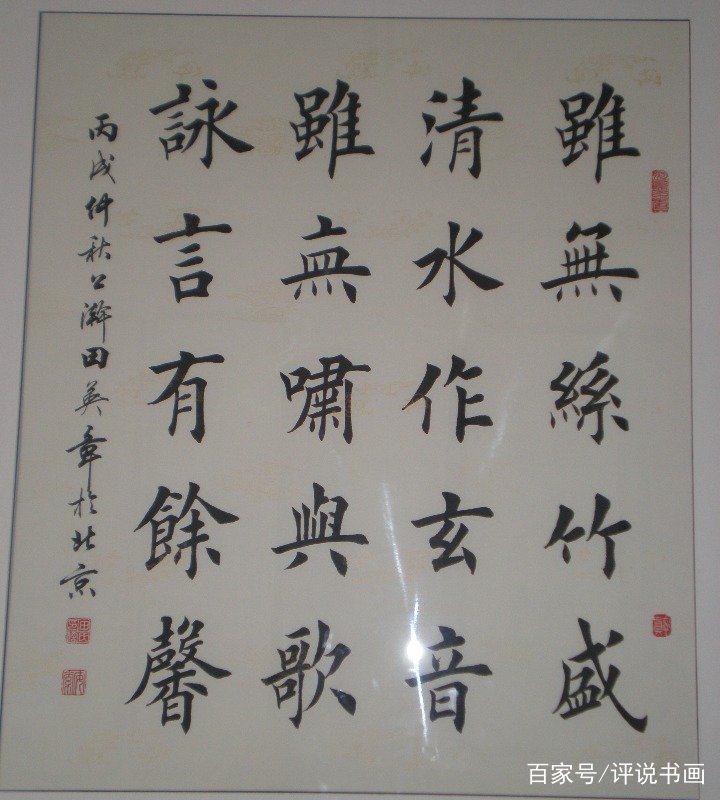 雖無絲竹盛
清水作玄音
雖無嘯與歌
詠言有餘馨
丙戌仲秋公瀚田英章於北京
百家号/评说书画